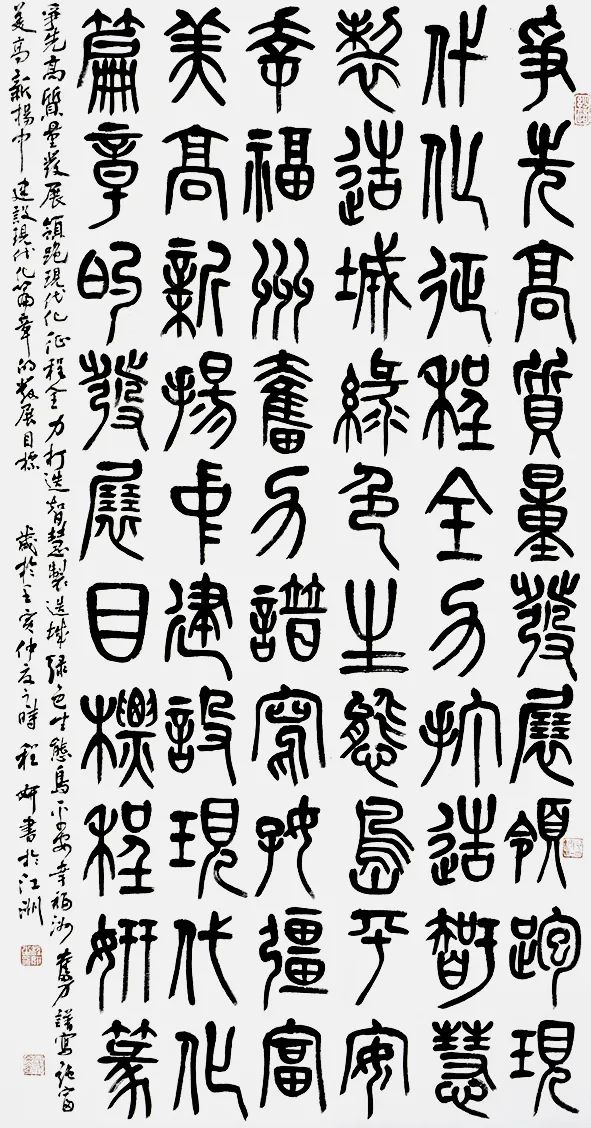 爭先高質量發展領跑現
代化征程全力打造智慧
製造城綠色生態島平安
幸福州奮力譜寫彊富
美高新揚中建設現代化
篇章的發展目標程妍篆
爭先高質量發展領跑現代化征程全力打造智慧製造城綠色生態島平安幸福洲奮力譜寫富
美高新揚中建設現代化篇章的發展目標 歲於壬寅仲夏之時程妍書於江洲